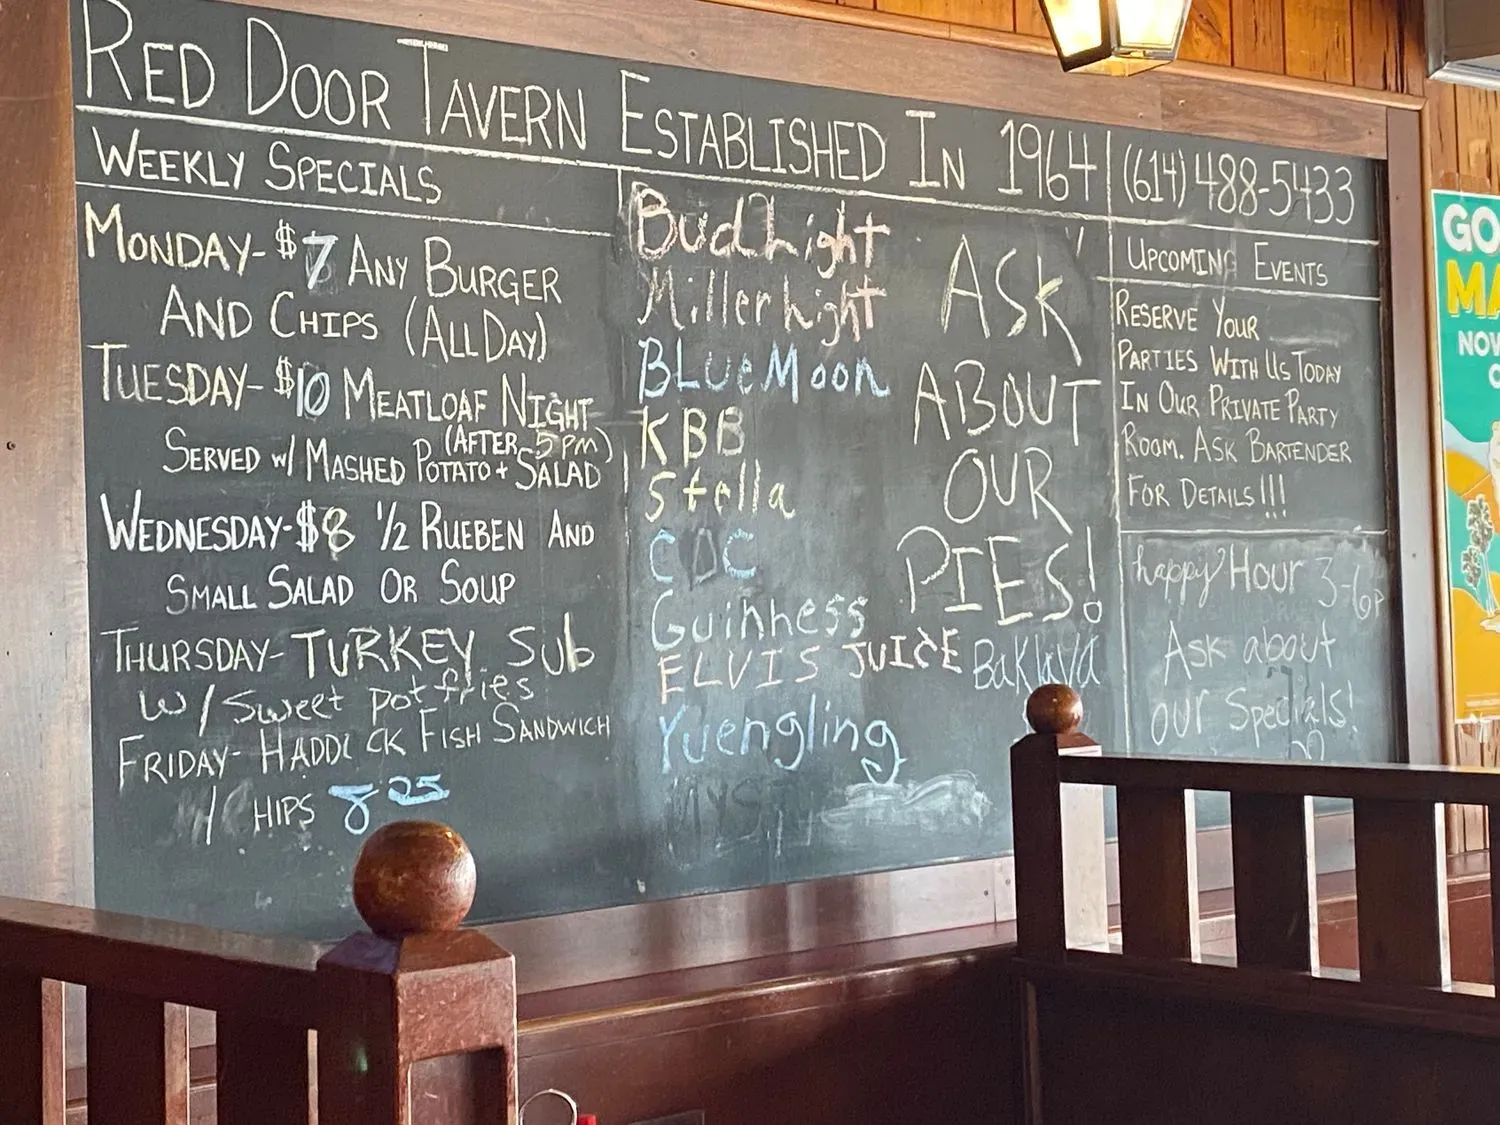 RED DOOR TAVERN ESTABLISHED IN 1964 (614) 488-5433
WEEKLY SPECIALS
MONDAY- $7 ANY BURGER
AND CHIPS (ALL DAY)
TUESDAY- $10 MEATLOAF NIGHT
(AFTER 5 PM)
SERVED W/ MASHED POTATO + SALAD
WEDNESDAY-$8 1/2 RUEBEN AND
SMALL SALAD OR SOUP
THURSDAY- TURKEY SUb
W/ Sweet pot fries
FRIDAY- HADDOCK FISH SANDWICH
W/ CHIPS 8.25
Bud Light
Miller Light
BLueMoon
KBB
Stella
CDC
Guinness
ELVIS JUICE
Yuengling
ASK
ABOUT
OUR
PIES!
BaKlaVa
UPCOMING EVENTS
RESERVE YOUR
PARTIES WITH US TODAY
IN OUR PRIVATE PARTY
ROOM. ASK BARTENDER
FOR DETAILS!!!
happy Hour 3-6p
Ask about
our Specials!
GO
MA
NOV